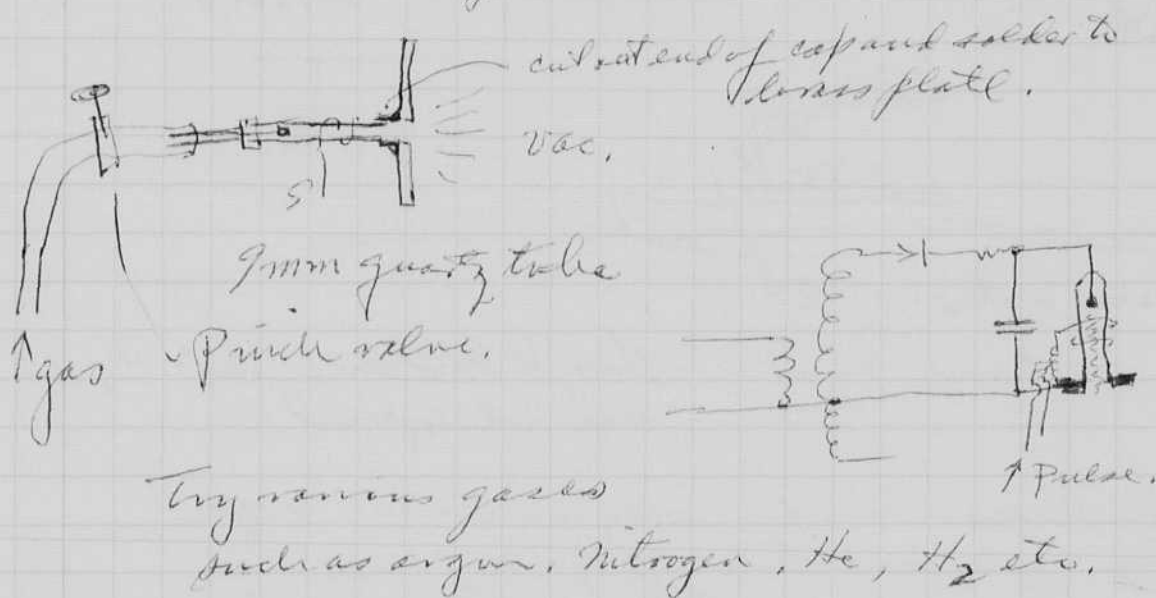 cut out end of cap and solder to
brass plate.
vac.
S
9mm quartz tube
Pinch valve.
↑gas
↑ Pulse.
Try various gases
such as argon, Nitrogen, He, H2 etc.